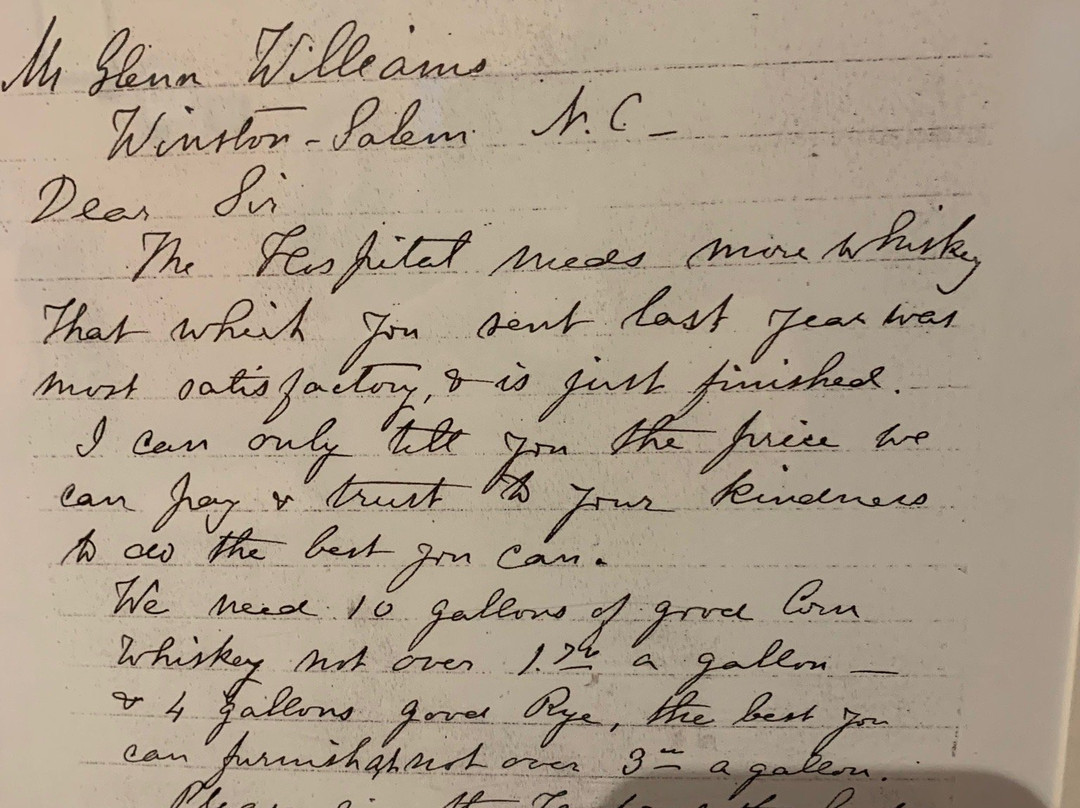 Mr Glenn Williams
Winston-Salem N.C-
Dear Sir
The Hospital needs more whiskey
that which you sent last year was
most satisfactory, & is just finished.
I can only tell you the price we
can pay & trust to your kindness
to do the best you can.
We need 10 gallons of good Corn
Whiskey not over a gallon —
& 4 gallons good Rye, the best you
can furnish at not over 3 a gallon.